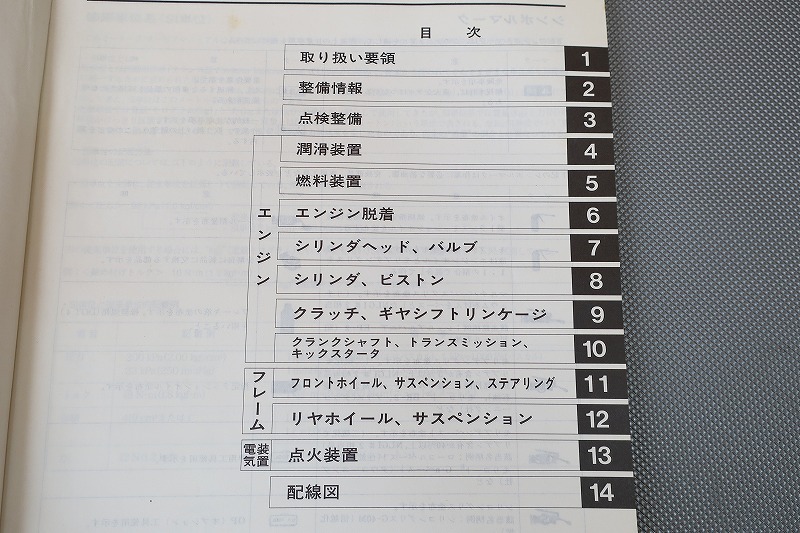 目 次
取り扱い要領 1
整備情報 2
点検整備 3
エンジン
潤滑装置 4
燃料装置 5
エンジン脱着 6
シリンダヘッド、バルブ 7
シリンダ、ピストン 8
クラッチ、ギヤシフトリンケージ 9
クランクシャフト、トランスミッション、
キックスタータ 10
フレーム
フロントホイール、サスペンション、ステアリング 11
リヤホイール、サスペンション 12
電装
気置
点火装置 13
配線図 14